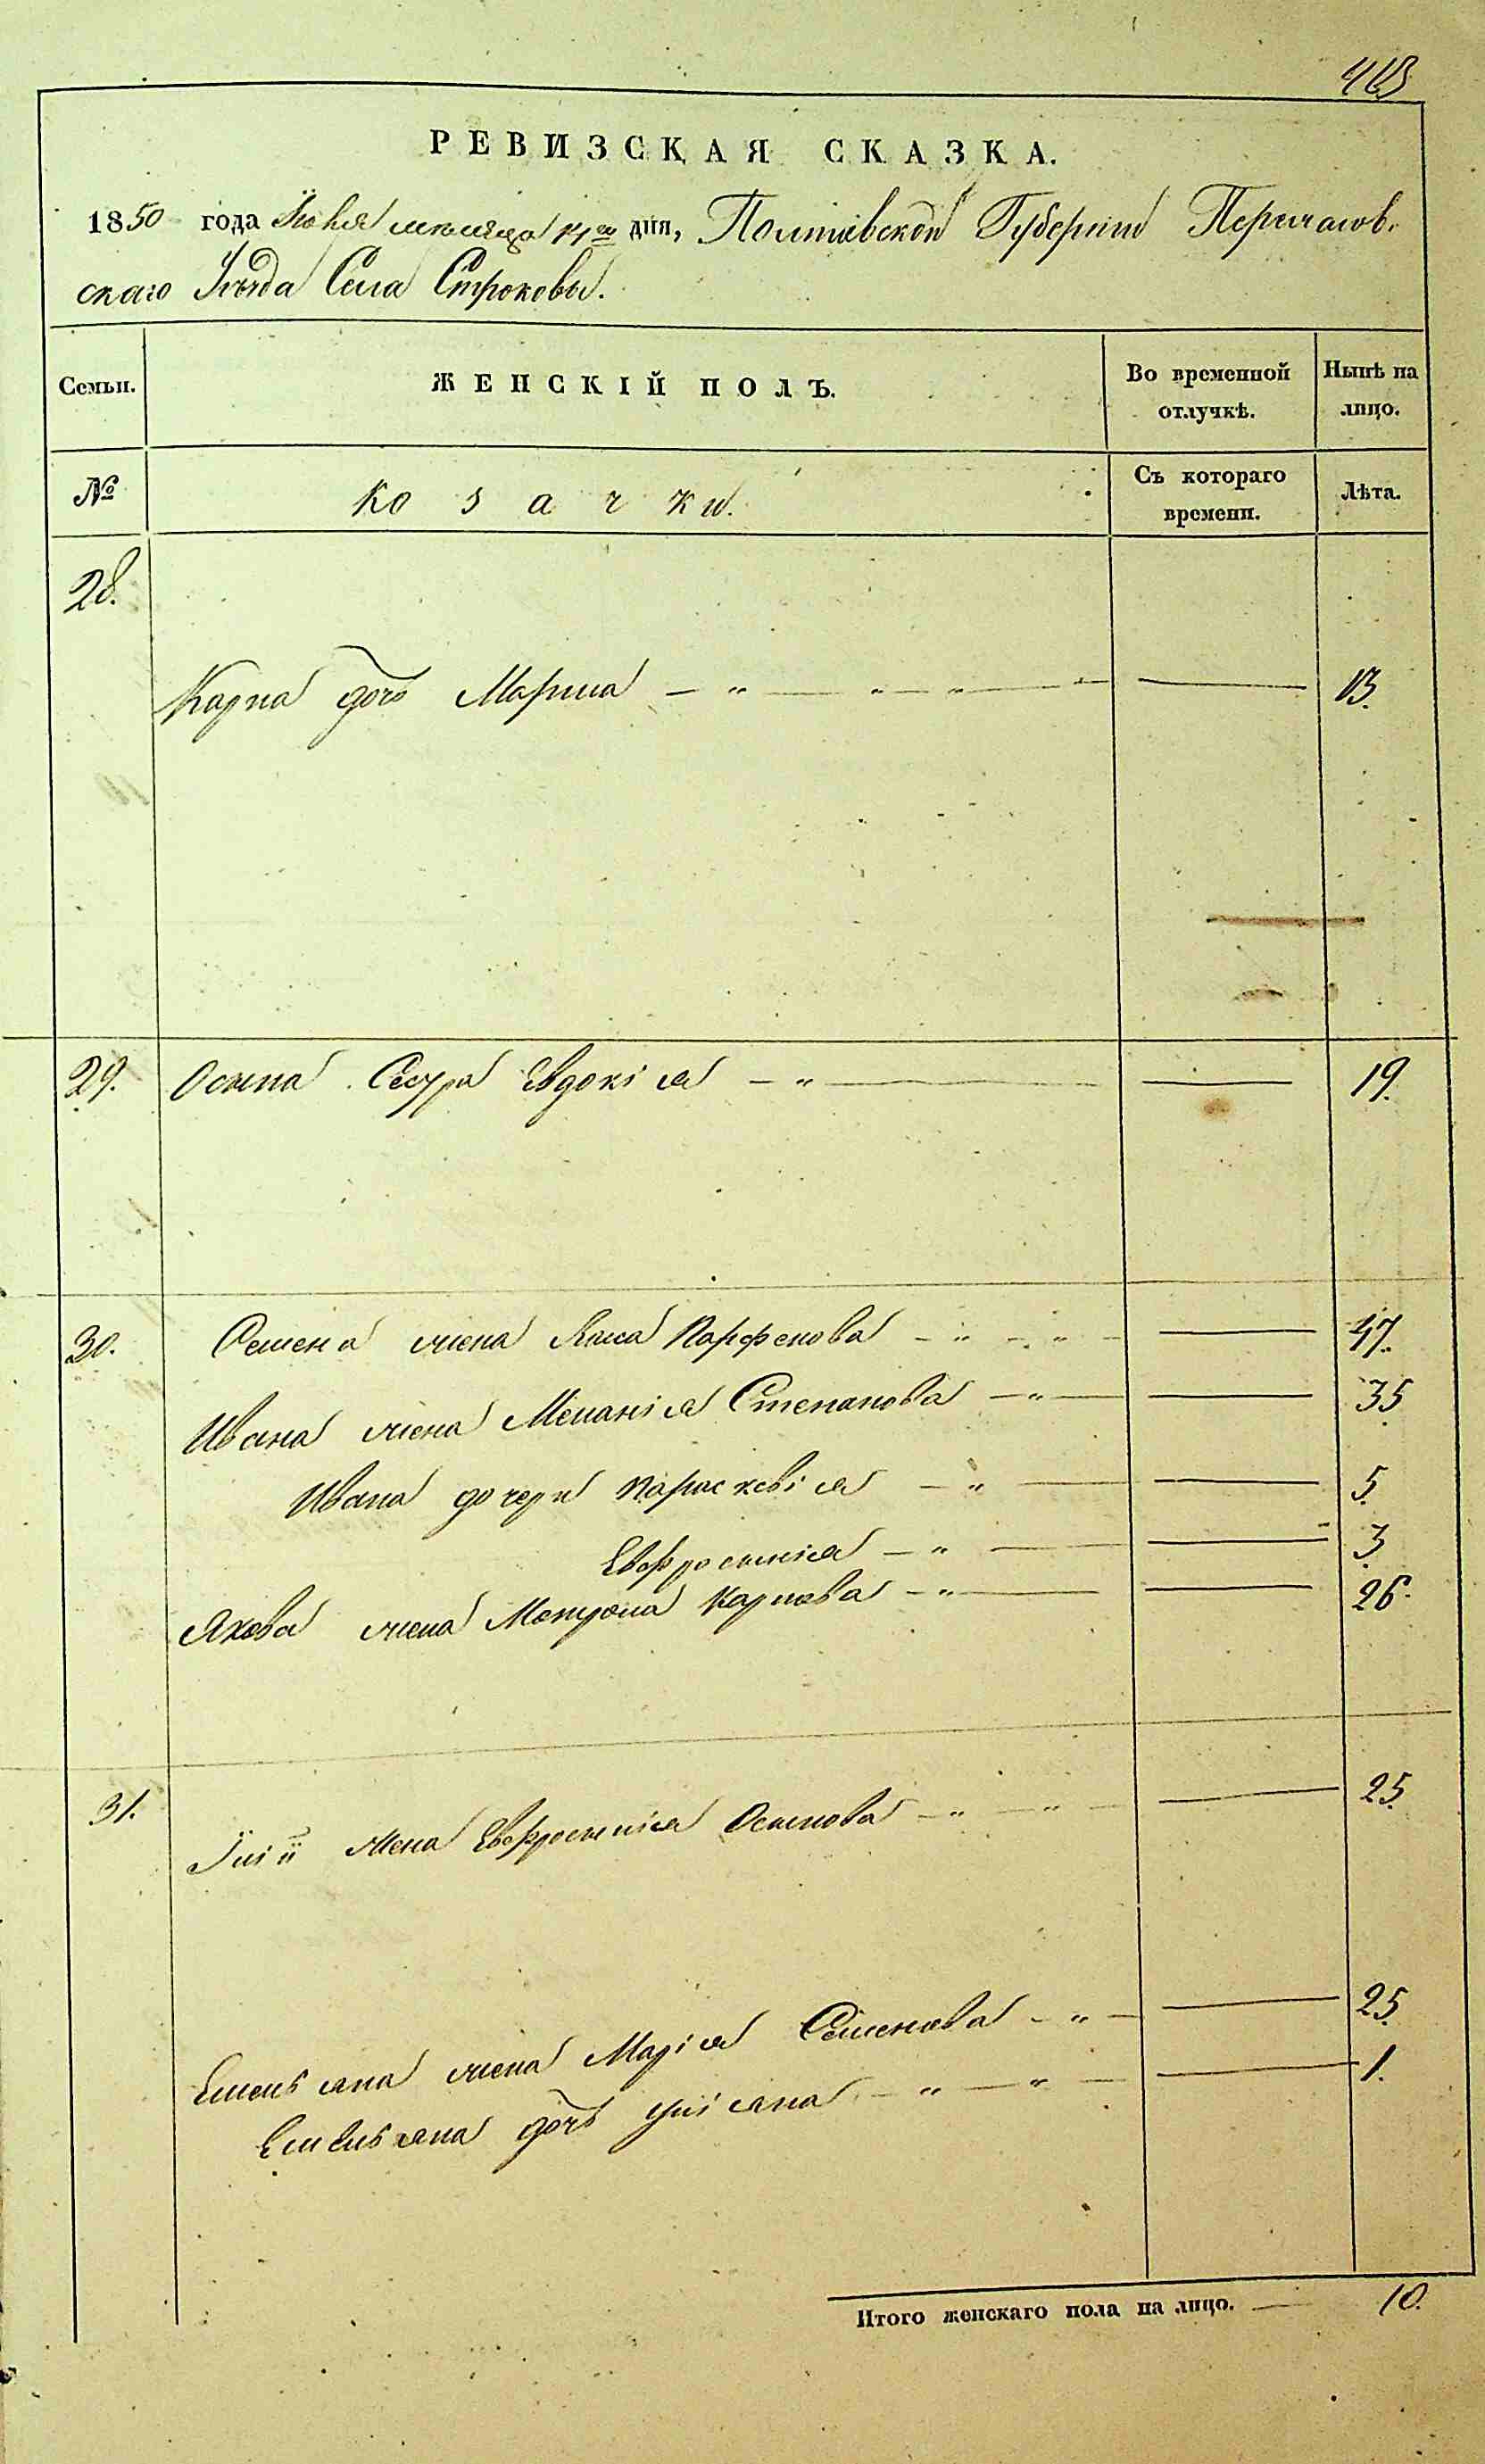 РЕВИЗСКАЯ СКАЗКА.
1850 года Июня месяца дня, Полтавской Губернии Переяслов-
скаго Уѣзда Села Строковы.
Семьи. ЖЕНСКІЙ ПОЛЪ. Во временной отлучкѣ. Нынѣ на лицо.
№ Козачки. Съ котораго времени. Лѣта.
28.
Карпа дочь Марина — „ — „ — „ — — 13.
29. Осипа Сестра Евдокія — „ — — 19.
30. Семена жена Парфенова — „ — „ — — 47.
Ивана жена Меланія Степанова — „ — — 35
Ивана дочери Параскевія — „ — — 5.
Евфросинія — „ — — 3
Якова жена Мотрона Карпова — „ — — 26.
31. Іліи жена Евфросинія Осипова — „ — „ — — 25.
Емельяна жена Марія Семенова — „ — — 25.
Емельяна дочь Уліяна — „ — „ — — 1.
Итого женскаго пола на лицо. — 10.